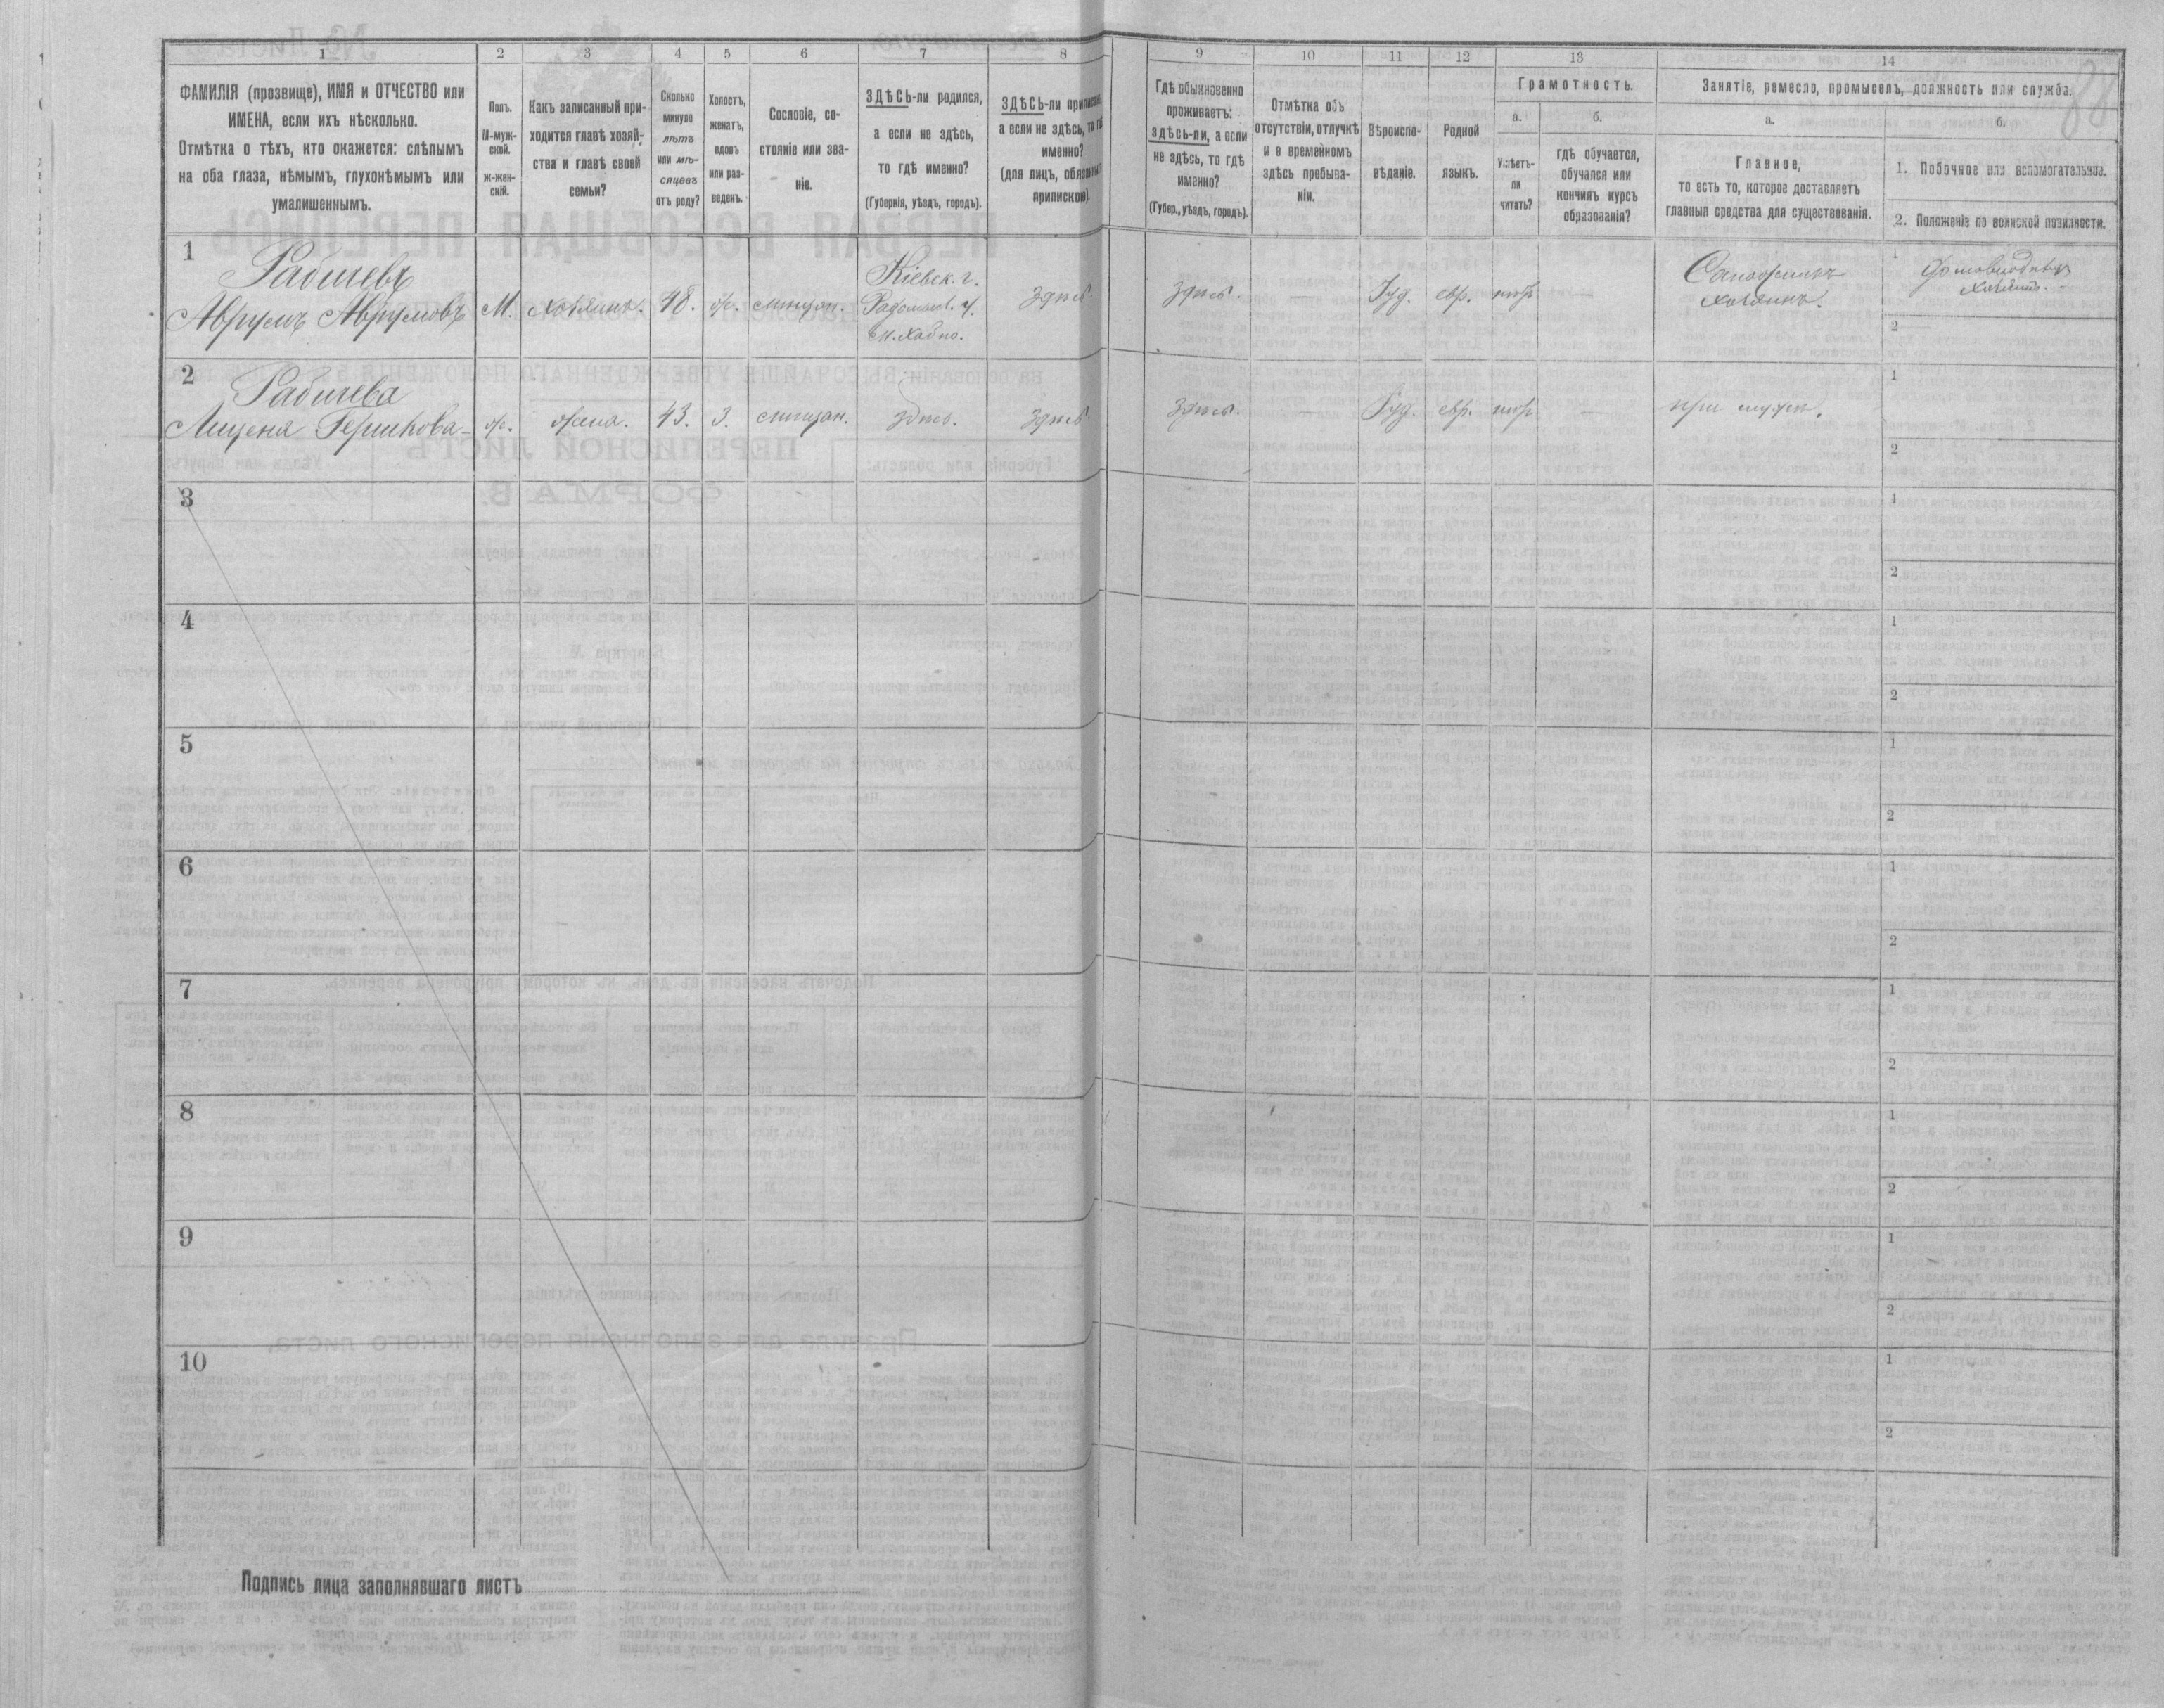 1
ФАМИЛІЯ (прозвище), ИМЯ и ОТЧЕСТВО или
ИМЕНА, если ихъ нѣсколько.
Отмѣтка о тѣхъ, кто окажется: слѣпымъ
на оба глаза, нѣмымъ, глухонѣмымъ или
умалишеннымъ.
2
Полъ.
М-муж-
ской.
ж-жен-
скій.
3
Какъ записанный при-
ходится главѣ хозяй-
ства и главѣ своей
семьи?
4
Сколько
минуло
лѣтъ
или мѣ-
сяцевъ
отъ роду?
5
Холостъ,
женатъ,
вдовъ
или раз-
веденъ.
6
Сословіе, со-
стояніе или зва-
ніе.
7
ЗДѢСЬ-ли родился,
а если не здѣсь,
то гдѣ именно?
(Губернія, уѣздъ, городъ).
8
ЗДѢСЬ-ли приписанъ,
а если не здѣсь, то гдѣ
именно?
(для лицъ, обязанныхъ
припиской).
9
Гдѣ обыкновенно
проживаетъ:
здѣсь-ли, а если
не здѣсь, то гдѣ
именно?
(Губер., уѣздъ, городъ).
10
Отмѣтка объ
отсутствіи, отлучкѣ
и о временномъ
здѣсь пребыва-
ніи.
11
Вѣроиспо-
вѣданіе.
12
Родной
языкъ.
13
Грамотность.
а.
Умѣетъ-
ли
читать?
б.
гдѣ обучается,
обучался или
кончилъ курсъ
образованія?
14
Занятіе, ремесло, промыселъ, должность или служба.
а.
Главное,
то есть то, которое доставляетъ
главныя средства для существованія.
б.
1. Побочное или вспомогательное.
2. Положеніе по воинской повинности.
1
Рабичевъ
Аврумъ Аврумовъ
М.
хозяинъ.
48.
ж.
мѣщан.
Кіевск. г.
Радомысл. у.
м. Хабно.
здѣсь.
здѣсь.
—
Іуд.
евр.
негр.
—
Сапожникъ
хозяинъ.
1
Домовладѣл.
хозяинъ.
2
2
Рабичева
Гершкова
ж.
жена.
43.
з.
мѣщан.
здѣсь.
здѣсь.
здѣсь.
—
Іуд.
евр.
негр.
—
при мужѣ.
1
2
3
1
2
4
1
2
5
1
2
6
1
2
7
1
2
8
1
2
9
1
2
10
1
2
Подпись лица заполнявшаго листъ